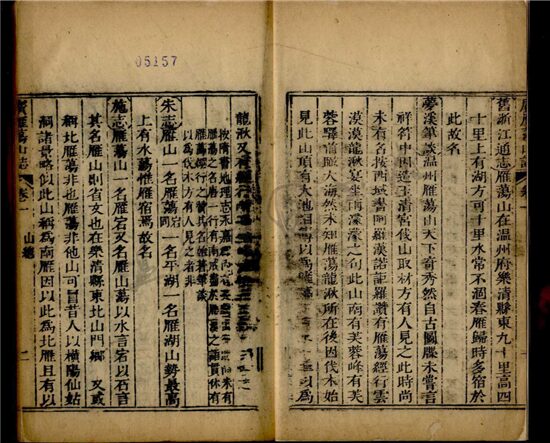 05157
舊浙江通志雁蕩山在温州府樂清縣東九十里高四
十里上有湖方可十里水常不涸春雁歸時多宿於
此故名
夢溪筆談温州雁蕩山天下奇秀然自古圖牒未嘗言
祥符中因造玉清宫伐山取材方有人見之此時尚
未有名按西域書阿羅漢諾詎羅讚有雁蕩經行雲
漠漠龍湫宴坐雨濛濛之句此山南有芙蓉峰有芙
蓉驛前瞰大海然未知雁蕩龍湫所在後因伐木始
見此山頂有大池相以為雁蕩以為
龍湫又有經行
按隋書地理志永嘉未有
雁蕩之名唐一行有南戒盡於雁蕩之語貫休有
雁蕩經行之讚其名雖著筆談
以為伐木方有人見之者非
朱志雁山一名雁蕩一名平湖一名雁湖山勢最高
上有水蕩惟雁宿焉故名
施志雁蕩山一名雁岩又名雁山蕩以水言宕以石言
其名雁山則省文也在樂清縣東北山門鄉 又或
稱北雁蕩非也雁蕩非他山可冒昔人以橫陽仙姑
洞諸景略似此山稱為南雁因以此為北雁且有以
廣雁蕩山志 卷一 山總 二